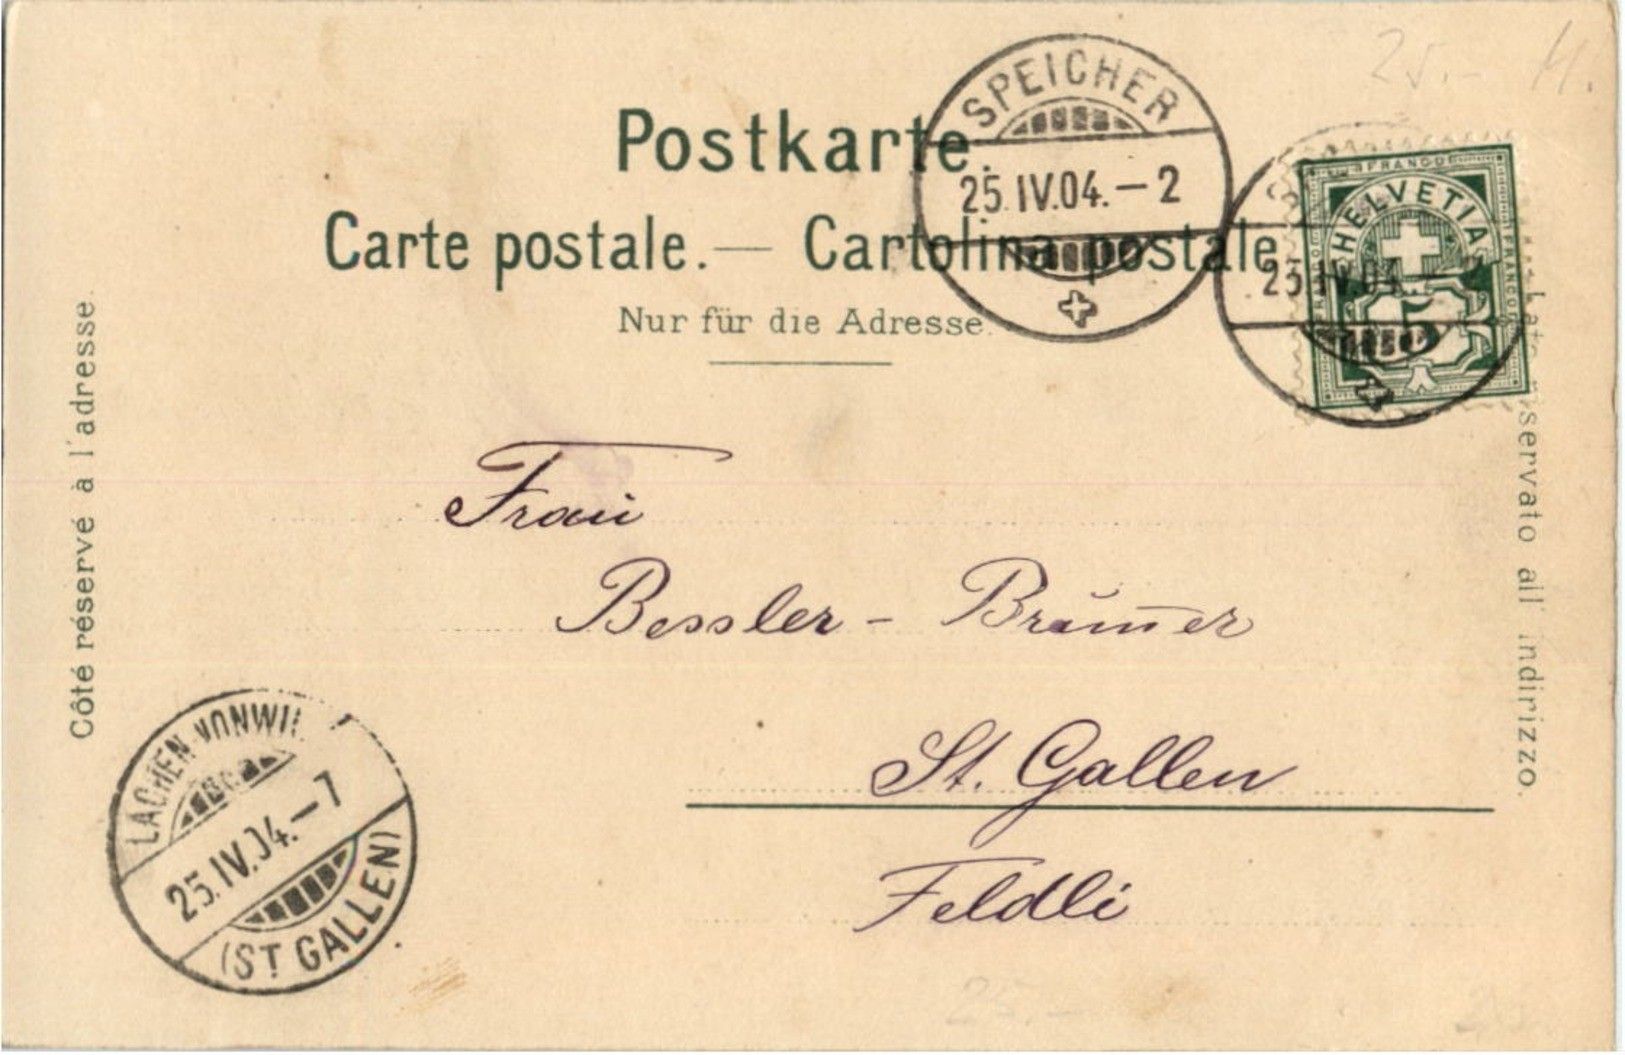 25.- H.
SPEICHER
25.IV.04.-2
Postkarte.
Carte postale. — Cartolina postale.
Nur für die Adresse.
FRANCO
HELVETIA
5
25.IV.04.-2
Côté réservé à l'adresse.
Lato riservato all'indirizzo.
Frau
Bessler - Brumer
St. Gallen
Feldli
LACHEN-VONWIL
25.IV.04.-7
(ST GALLEN)
25.-